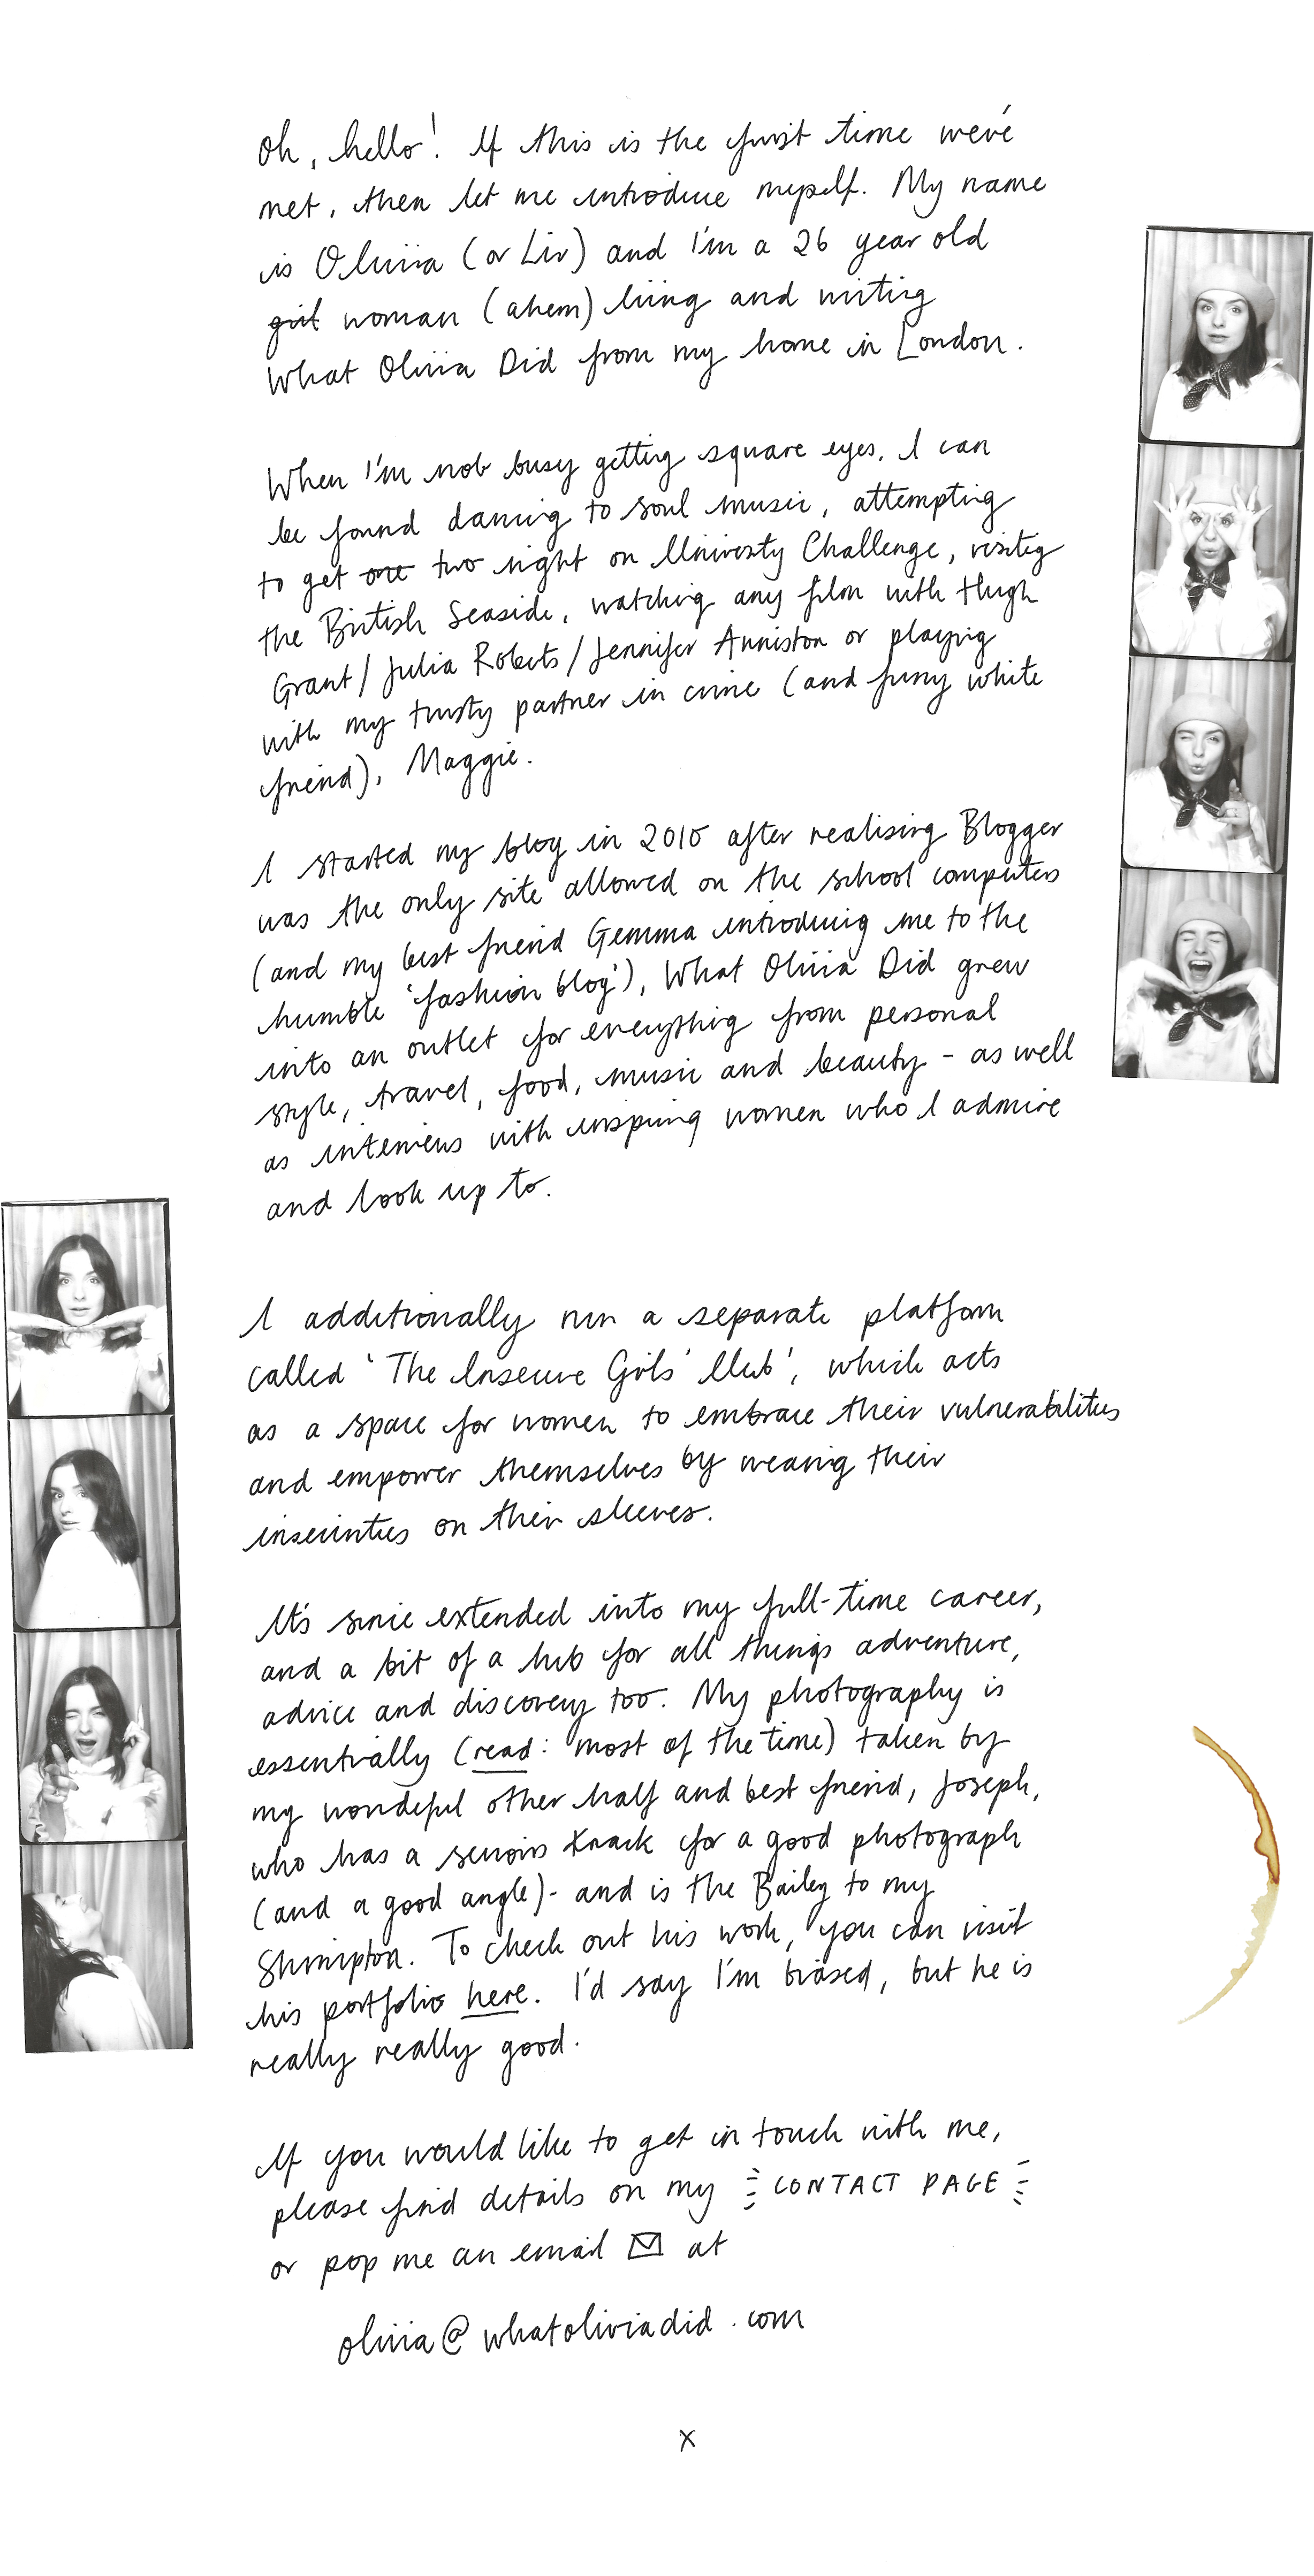 Oh, hello! If this is the first time we've
met, then let me introduce myself. My name
is Olivia (or Liv) and I'm a 26 year old
girl woman (ahem) living and writing
What Olivia Did from my home in London.
When I'm not busy getting square eyes, I can
be found dancing to soul music, attempting
to get one two right on University Challenge, visiting
the British Seaside, watching any film with Hugh
Grant/Julia Roberts/Jennifer Anniston or playing
with my trusty partner in crime (and furry white
friend), Maggie.
I started my blog in 2010 after realising Blogger
was the only site allowed on the school computers
(and my best friend Gemma introducing me to the
humble 'fashion blog'), What Olivia Did grew
into an outlet for everything from personal
style, travel, food, music and beauty - as well
as interviews with inspiring women who I admire
and look up to.
I additionally run a separate platform
called 'The Insecure Girls' Club', which acts
as a space for women to embrace their vulnerabilities
and empower themselves by wearing their
insecurities on their sleeves.
It's since extended into my full-time career,
and a bit of a hub for all things adventure,
advice and discovery too. My photography is
essentially (read: most of the time) taken by
my wonderful other half and best friend, Joseph,
who has a serious knack for a good photograph
(and a good angle) - and is the Bailey to my
Shrimpton. To check out his work, you can visit
his portfolio here. I'd say I'm biased, but he is
really really good.
If you would like to get in touch with me,
please find details on my CONTACT PAGE
or pop me an email at
olivia@whatoliviadid.com
x